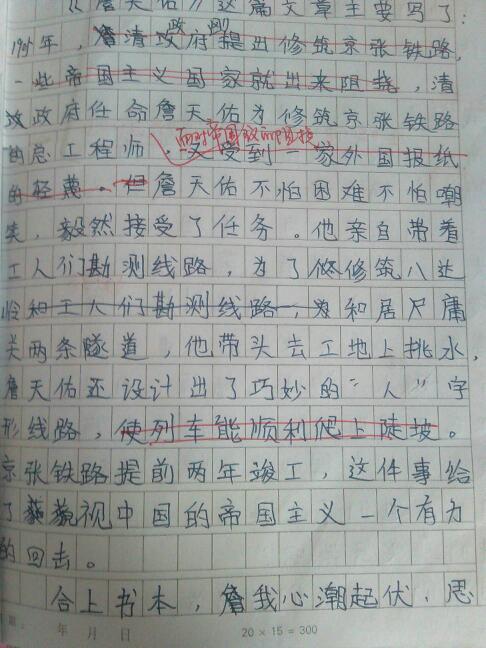 《詹天佑》这篇文章主要写了:
政府
1905年,詹清政府提出修筑京张铁路,
一些帝国主义国家就出来阻挠,清
政政府任命詹天佑为修筑京张铁路
面对帝国主义的阻挠
的总工程师,又受到一家外国报纸
的轻蔑。但詹天佑不怕困难不怕嘲
笑,毅然接受了任务。他亲自带着
工人们勘测线路,为了修修筑八达
岭和工人们勘测线路,为和居尺庸
关两条隧道,他带头去工地上挑水,
詹天佑还设计出了巧妙的“人”字
形线路,使列车能顺利爬上陡坡。
京张铁路提前两年竣工,这件事给
了藐藐视中国的帝国主义一个有力
的回击。
合上书本,詹我心潮起伏,思
年 月 日
20 × 15 = 300